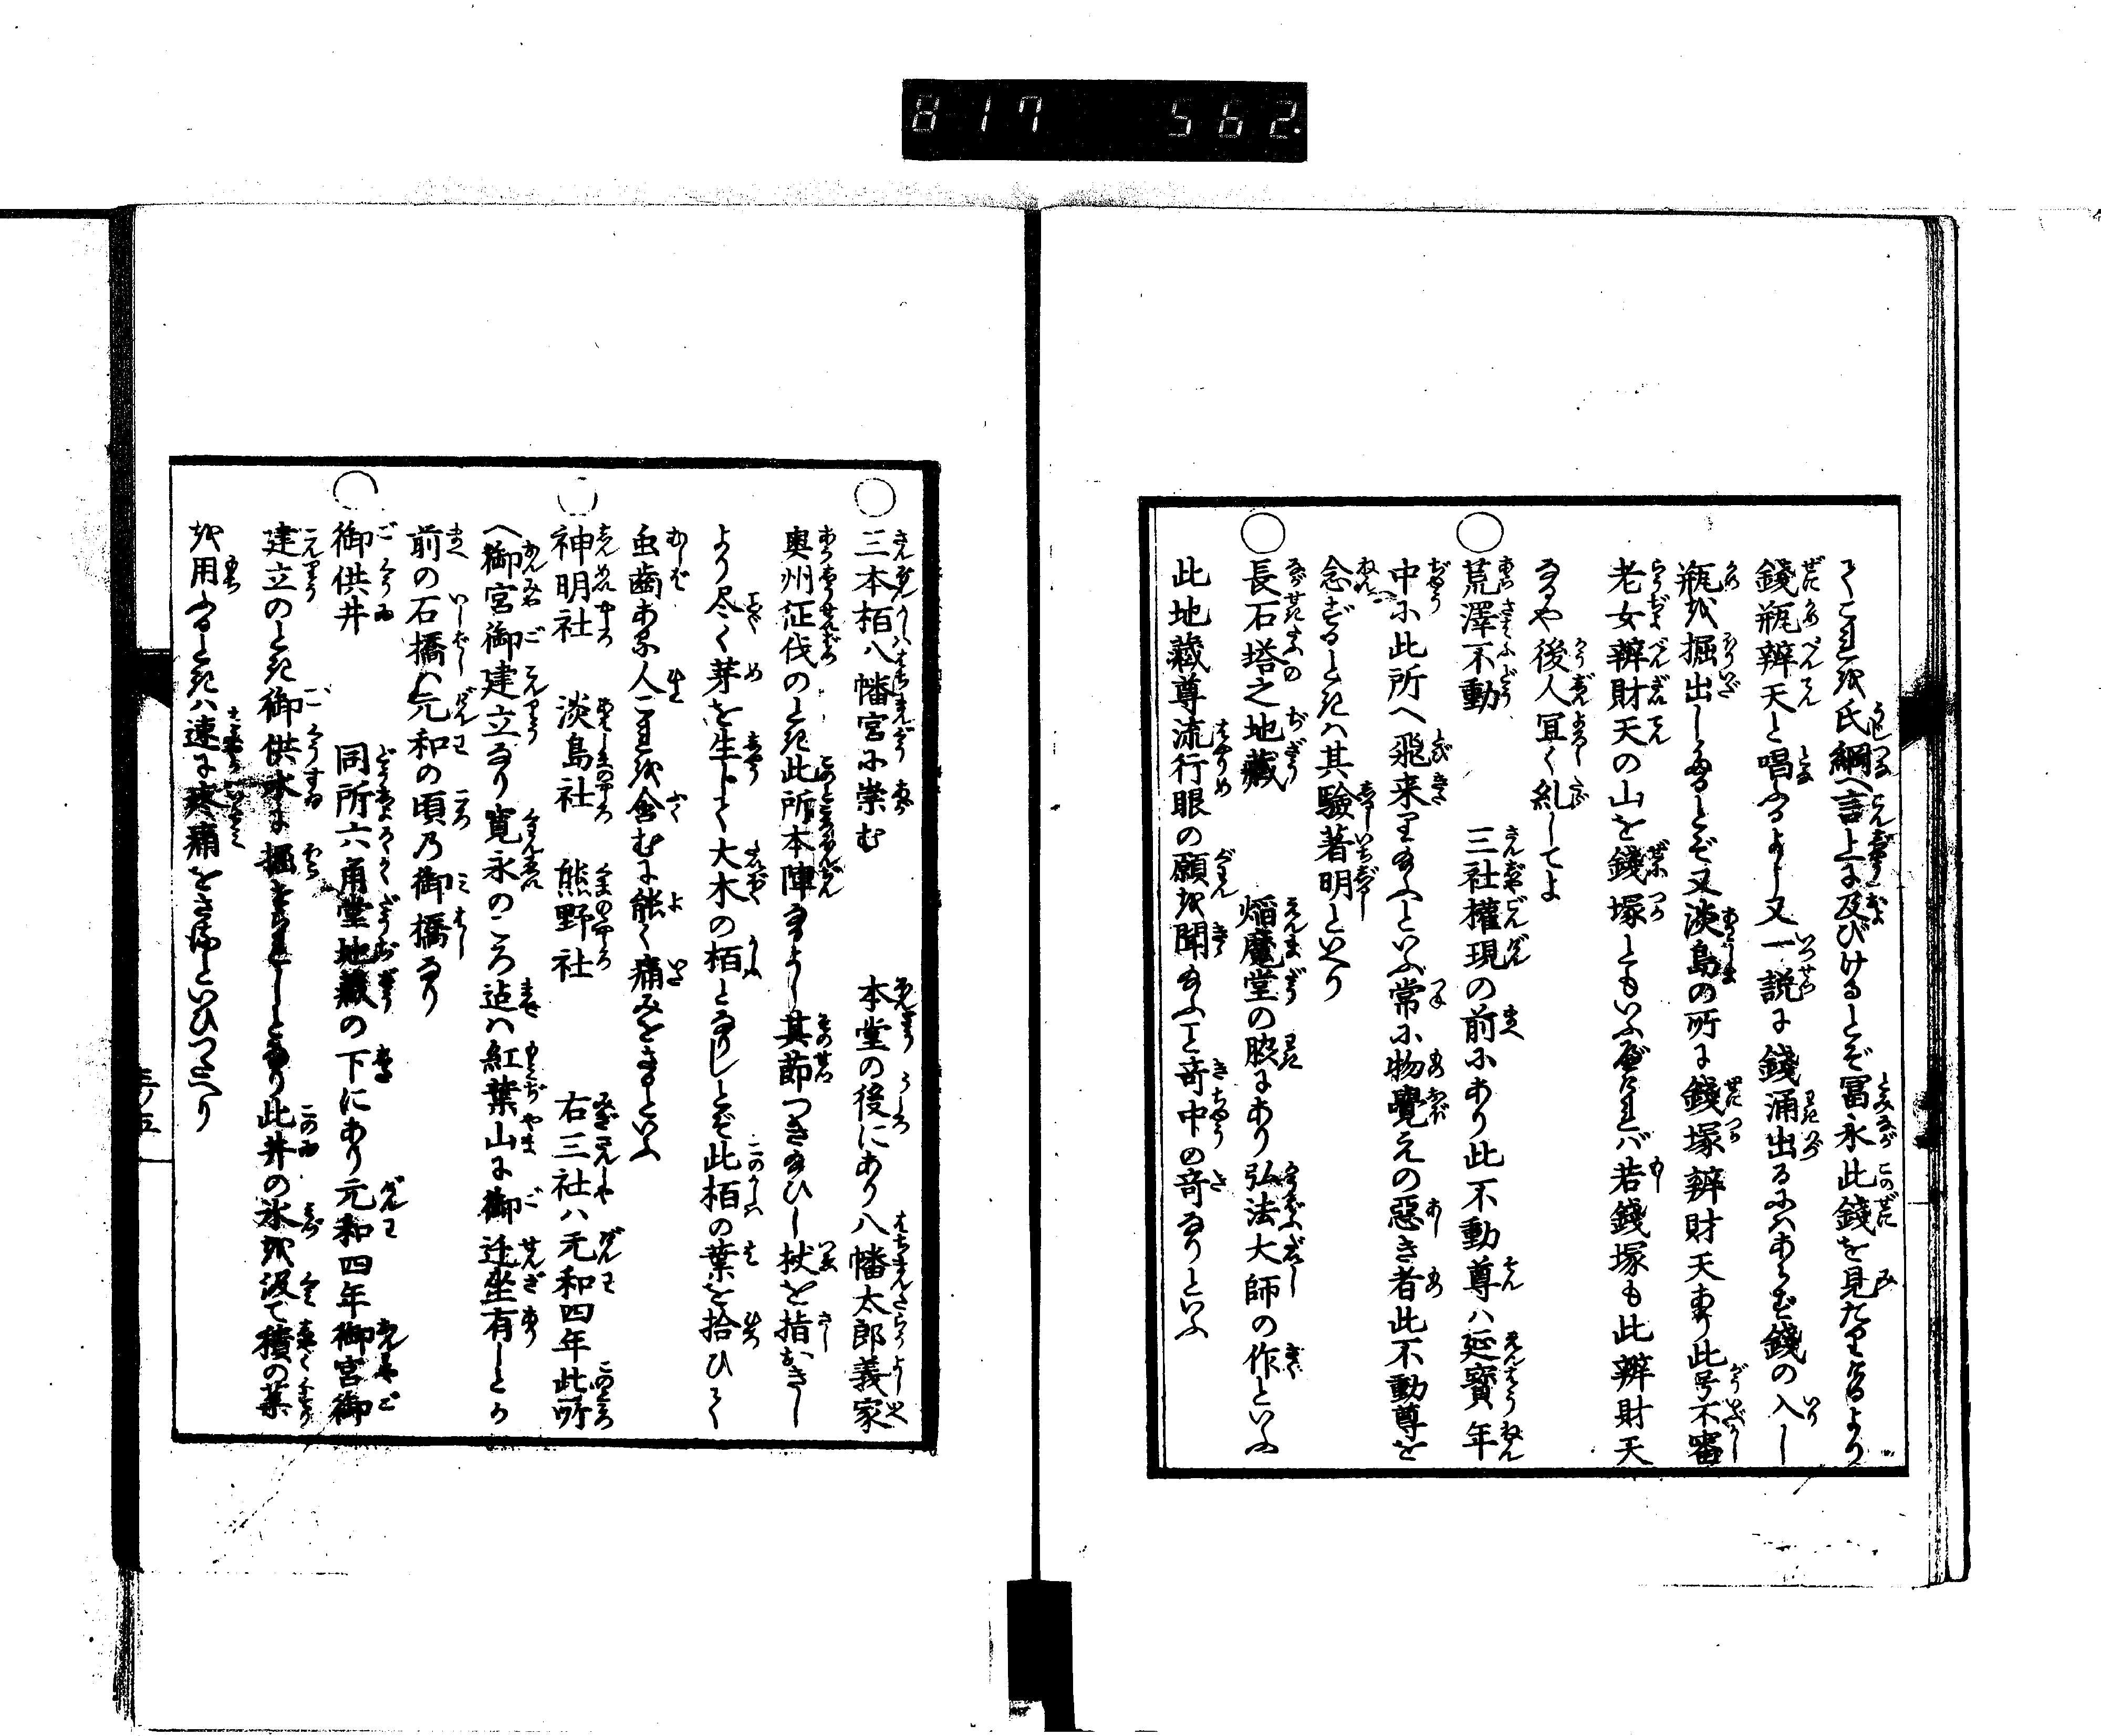 817 562.
てこれを氏綱へ言上に及びけるとぞ冨永此錢を見たりけるより
錢瓶辨天と唱ふるよし又一説に錢涌出るにハあらず錢の入し
瓶を掘出しゝなるとぞ又淡島の所に錢塚辨財天あり此号不審
老女辨財天の山を錢塚ともいふなれバ若錢塚も此辨財天
なるや後人宜く糺してよ
○荒澤不動 三社權現の前にあり此不動尊ハ延寳年
中に此所へ飛来り給ふといふ常に物覺えの惡き者此不動尊を
念ずるときハ其驗著明といへり
○長石塔之地藏 焔魔堂の脇にあり弘法大師の作といふ
此地藏尊流行眼の願を聞給ふこと竒中の竒なりといふ
○三本栢八幡宮に崇む 本堂の後にあり八幡太郎義家
奥州征伐のとき此所本陣なるよし其節つき給ひし杖を指おきし
より尽く芽を生じて大木の栢となりしとぞ此栢の葉を拾ひて
虫齒ある人これを含むに能く痛みをさるといふ
○神明社 淡島社 熊野社 右三社ハ元和四年此所
へ御宮御建立なり寛永のころ迠ハ紅葉山に御迁坐有しとか
前の石橋ハ元和の頃乃御橋なり
○御供井 同所六角堂地藏の下にあり元和四年御宮御
建立のとき御供水に掘せられしとあり此井の水を汲て積の薬
を用るときハ速に疼痛をさますといひつたへり
三ノ五